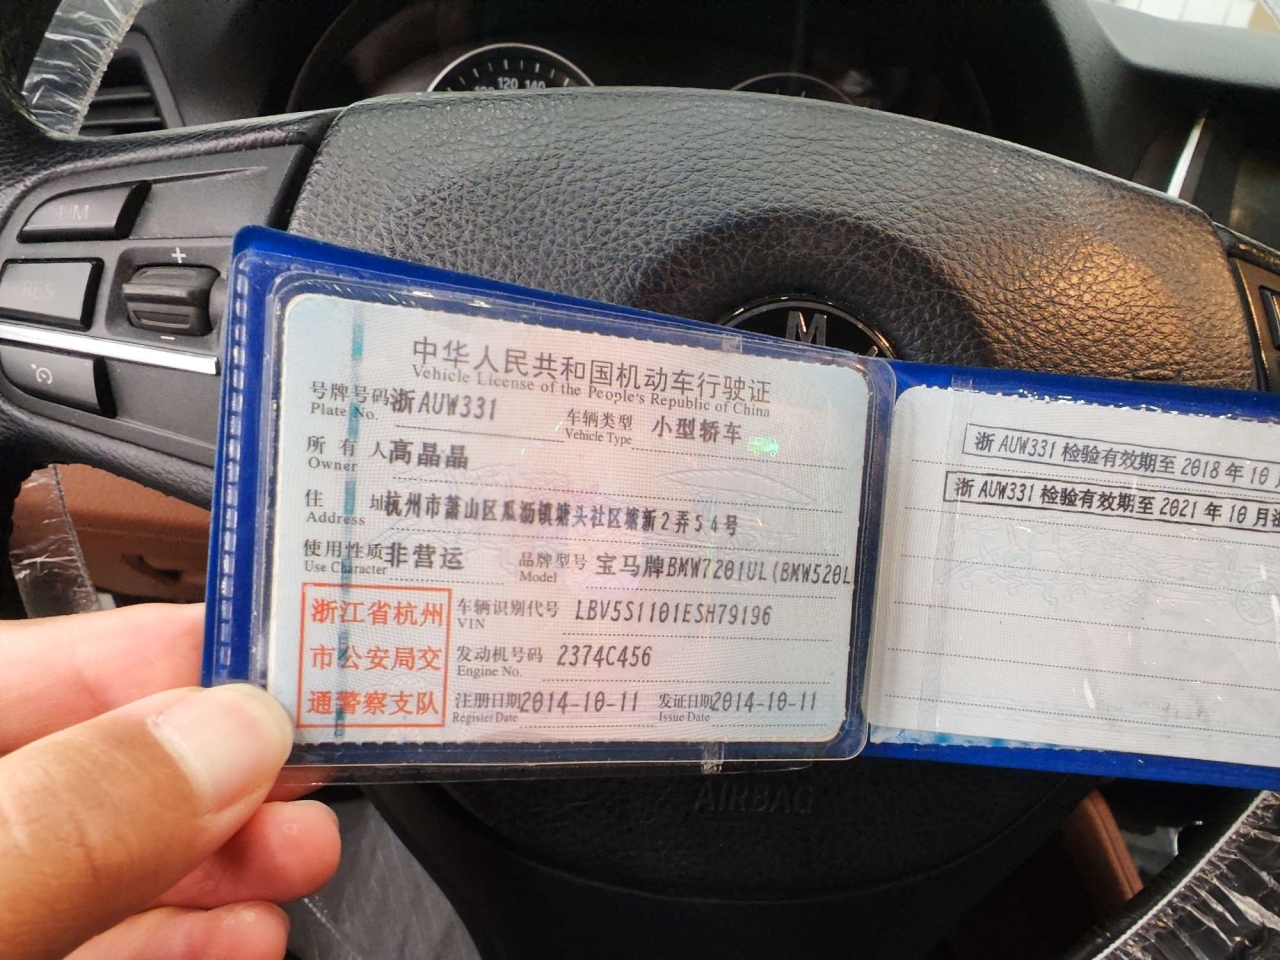 120 140
I/M
+
RES
−
M
中华人民共和国机动车行驶证
Vehicle License of the People's Republic of China
号牌号码 浙AUW331 车辆类型 小型轿车
Plate No. Vehicle Type
所有人 高晶晶
Owner
住址 杭州市萧山区瓜沥镇塘头社区塘新2弄54号
Address
使用性质 非营运 品牌型号 宝马牌BMW7201UL(BMW520L
Use Character Model
浙江省杭州
市公安局交
通警察支队
车辆识别代号 LBV5S1101ESH79196
VIN
发动机号码 2374C456
Engine No.
注册日期 2014-10-11 发证日期 2014-10-11
Register Date Issue Date
浙AUW331检验有效期至2018年10
浙AUW331检验有效期至2021年10月
AIRBAG